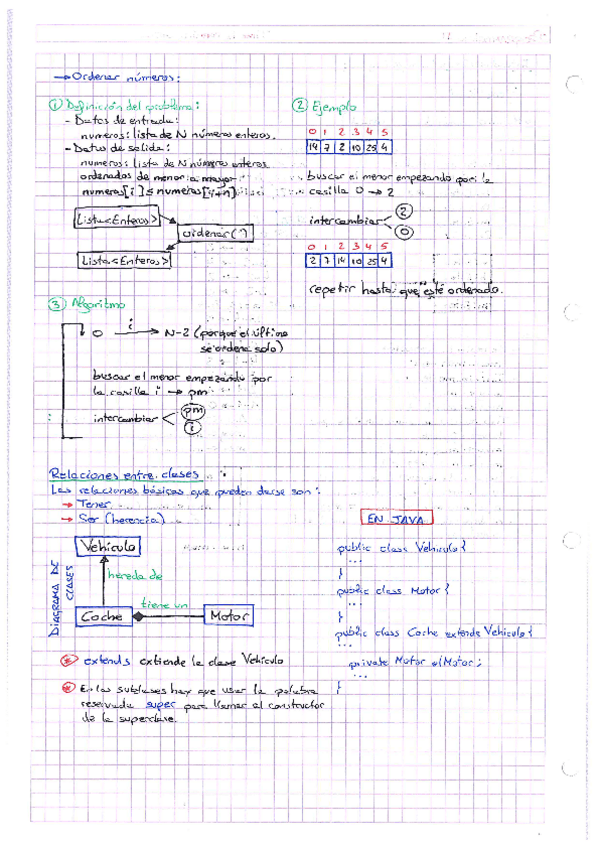 → Ordenar números:
① Definición del problema:
- Datos de entrada:
numeros: lista de N números enteros.
- Datos de salida:
numeros: lista de N números enteros
ordenados de menor a mayor
numeros[i] ≤ numeros[i+n]
Lista<Enteros>
ordenar()
Lista<Enteros>
② Ejemplo
0 1 2 3 4 5
14 7 2 10 25 4
buscar el menor empezando por la
casilla 0 → 2
intercambiar
2
0
0 1 2 3 4 5
2 7 14 10 25 4
repetir hasta que esté ordenado.
③ Algoritmo
0 i → N-2 (porque el último
se ordena solo)
buscar el menor empezando por
la casilla i → pm
intercambiar
pm
i
Relaciones entre clases
Las relaciones básicas que pueden darse son:
→ Tener
→ Ser (herencia)
DIAGRAMA DE
CLASES
Vehículo
hereda de
tiene un
Coche
Motor
* extends extiende la clase Vehículo
* En las subclases hay que usar la palabra
reservada super para llamar al constructor
de la superclase.
EN JAVA
public class Vehiculo {
...
}
public class Motor {
...
}
public class Coche extends Vehiculo {
...
private Motor elMotor;
}